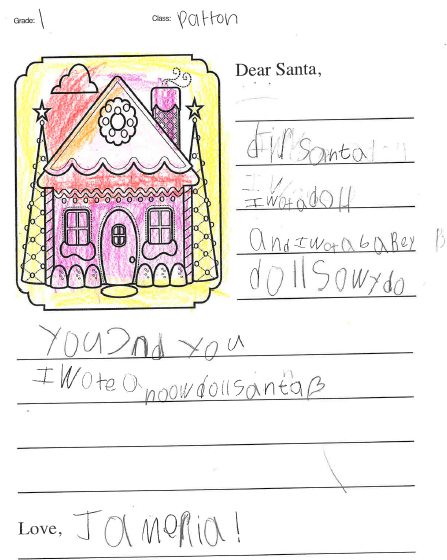 Grade: 1 Class: Patton
Dear Santa,
dir Santa
I wota doll
and I wota baBey
dollSowydo
you and you
I wote a noow doll santa B
Love, Jameria!